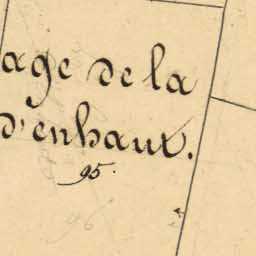 age de la
d'enhaut.
95.